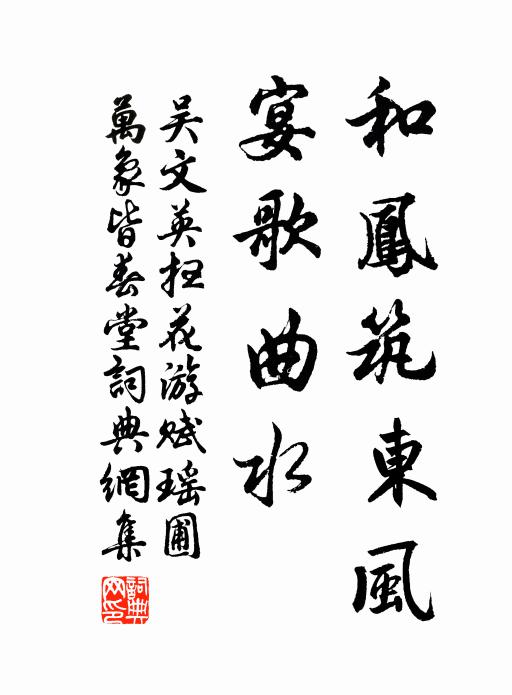 和鳳筑東風
宴歌曲水
吴文英扫花游賦瑶圃
萬象皆春堂詞典網集
詞典网印